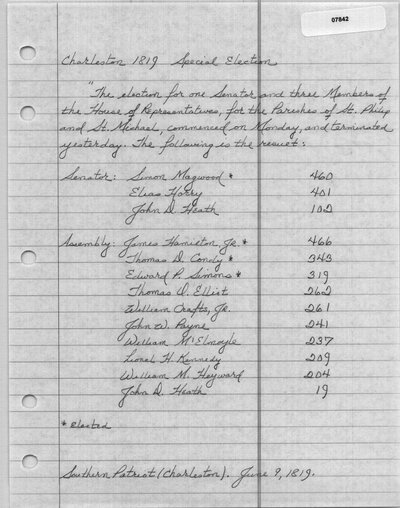 07842
Charleston 1819 Special Election
"The election for one Senator and three Members of
the House of Representatatives, for the Parishes of St. Philip
and St. Michael, commenced on Monday, and terminated
yesterday. The following is the result:
Senator: Simon Magwood * 460
Elias Horry 401
John D. Heath 102
Assembly: James Hamilton Jr. * 466
Thomas D. Condy * 343
Edward P. Simons * 319
Thomas O. Elliot 262
William Crafts, Jr. 261
John W. Payne 241
William McElmoyle 237
Lionel H. Kennedy 209
William M. Heyward 204
John D. Heath 19
* elected
Southern Patriot (Charleston). June 9, 1819.